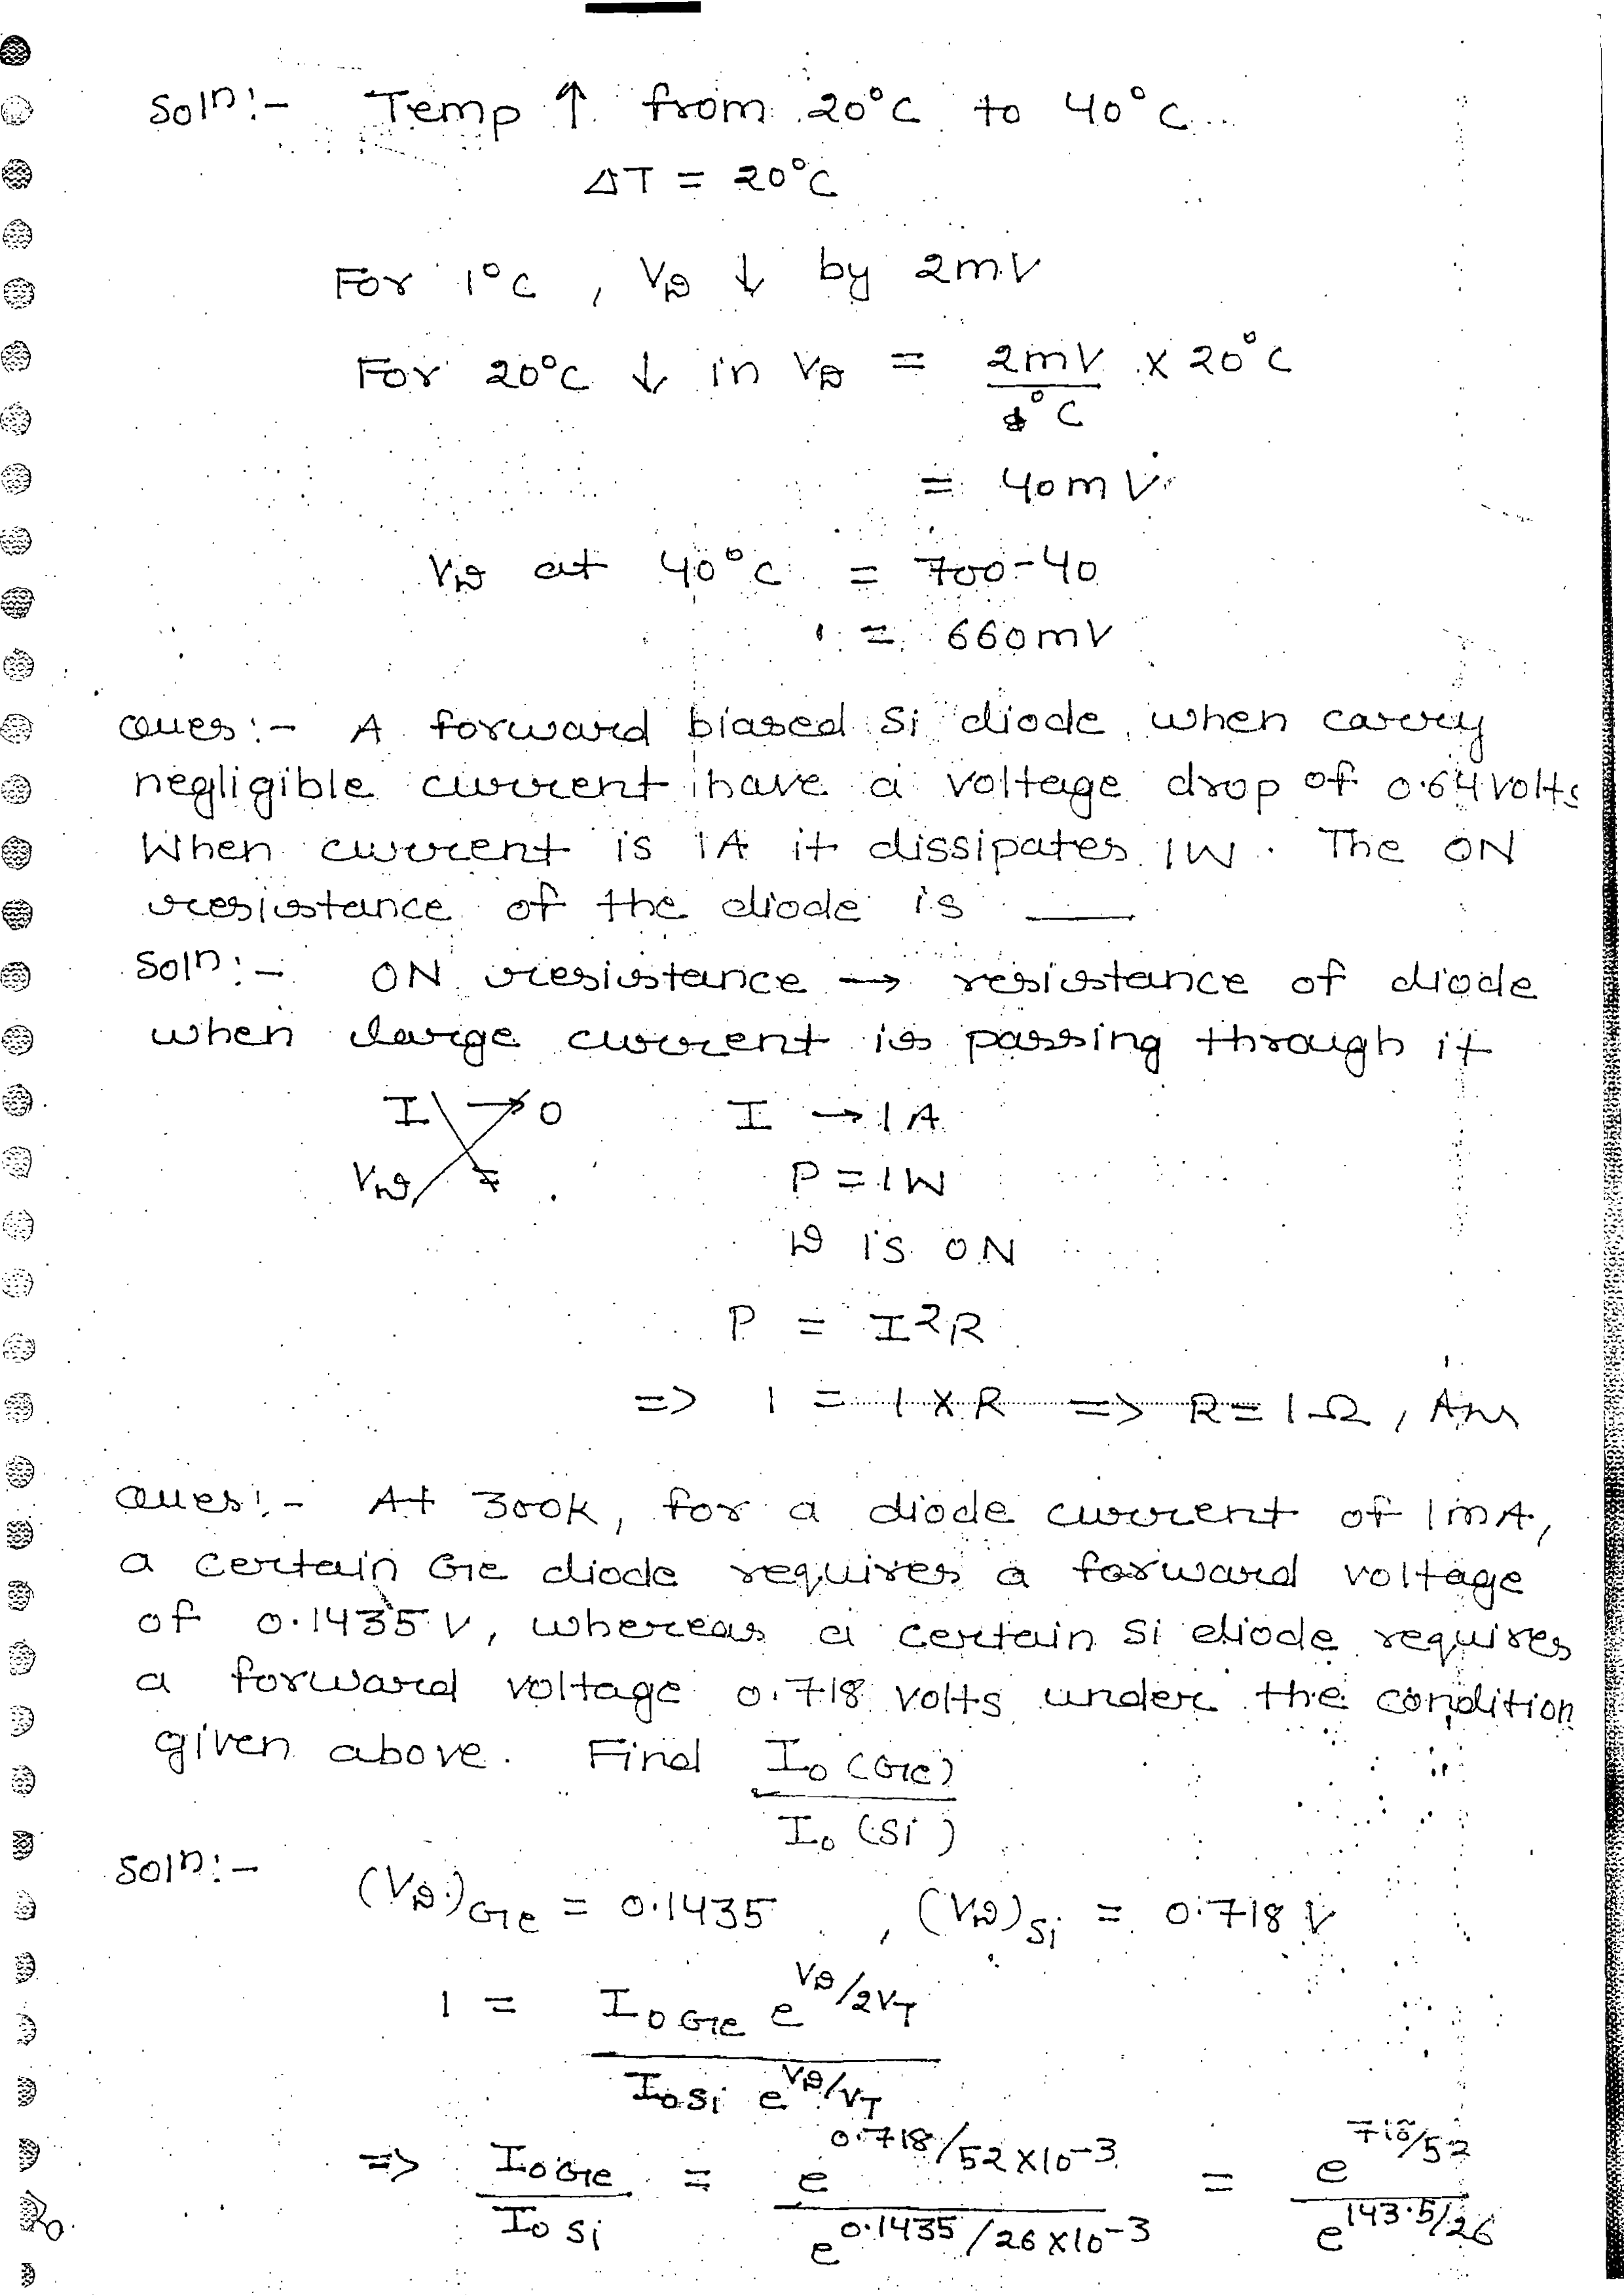 Soln:- Temp ↑ from 20°C to 40°C
ΔT = 20°C
For 1°C , VD ↓ by 2mV
For 20°C ↓ in VD = 2mV/1°C × 20°C
= 40mV
VD at 40°C = 700-40
= 660mV
Ques:- A forward biased Si diode, when carry
negligible current have a voltage drop of 0.64 volts
When current is 1A it dissipates 1W. The ON
resistance of the diode is ___
Soln:- ON resistance → resistance of diode
when large current is passing through it
I → 0 I → 1A
VD = P = 1W
D is ON
P = I²R
=> 1 = 1 × R => R = 1Ω, Ans
Ques:- At 300K, for a diode current of 1mA,
a certain Ge diode requires a forward voltage
of 0.1435 V, whereas a certain Si diode requires
a forward voltage 0.718 volts under the condition
given above. Find I0 (Ge)
I0 (Si)
Soln:- (VD)Ge = 0.1435 , (VD)Si = 0.718 V
1 = I0Ge e^VD/2VT
I0Si e^VD/VT
=> I0Ge/I0Si = e^0.718/52×10^-3 / e^0.1435/26×10^-3 = e^718/52 / e^143.5/26